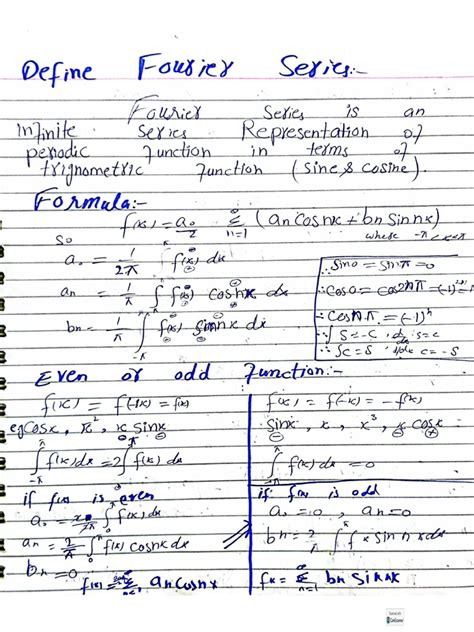 Define Fourier Series:-
Fourier Series is an
Infinite Series Representation of
periodic Function in terms of
trignometric Function (sine & cosine).
Formula:-
f(x) = a₀/2 Σ_{n=1}^{∞} (an cosnx + bn sinnx)
so where -π < x < π
a₀ = 1/2π ∫ f(x) dx
an = 1/π ∫ f(x) cosnx dx
bn = 1/π ∫_{-π}^{π} f(x) sinnx dx
∴ Sin0 = Sinπ = 0
∴ Cos0 = Cos2nπ = (-1)^{2n}
∴ Cosnπ = (-1)^n
∴ ∫S = -C, d/dx S = C
∴ ∫C = S, d/dx C = -S
Even or odd Function:-
f(x) = f(-x) = f(x)
eg Cosx, x², x sinx
∫_{-π}^{π} f(x) dx = 2∫_{0}^{π} f(x) dx
if f(x) is even
a₀ = ∫_{0}^{π} f(x) dx
an = 2/π ∫_{0}^{π} f(x) cosnx dx
bn = 0
f(x) = Σ an cosnx
f(x) = f(-x) = -f(x)
Sinx, x, x³, x cosx
∫_{-π}^{π} f(x) dx = 0
if f(x) is odd
a₀ = 0, an = 0
bn = 2/π ∫_{0}^{π} f x sin nx dx
fx = Σ_{n=1}^{∞} bn Sinnx
CamScanner